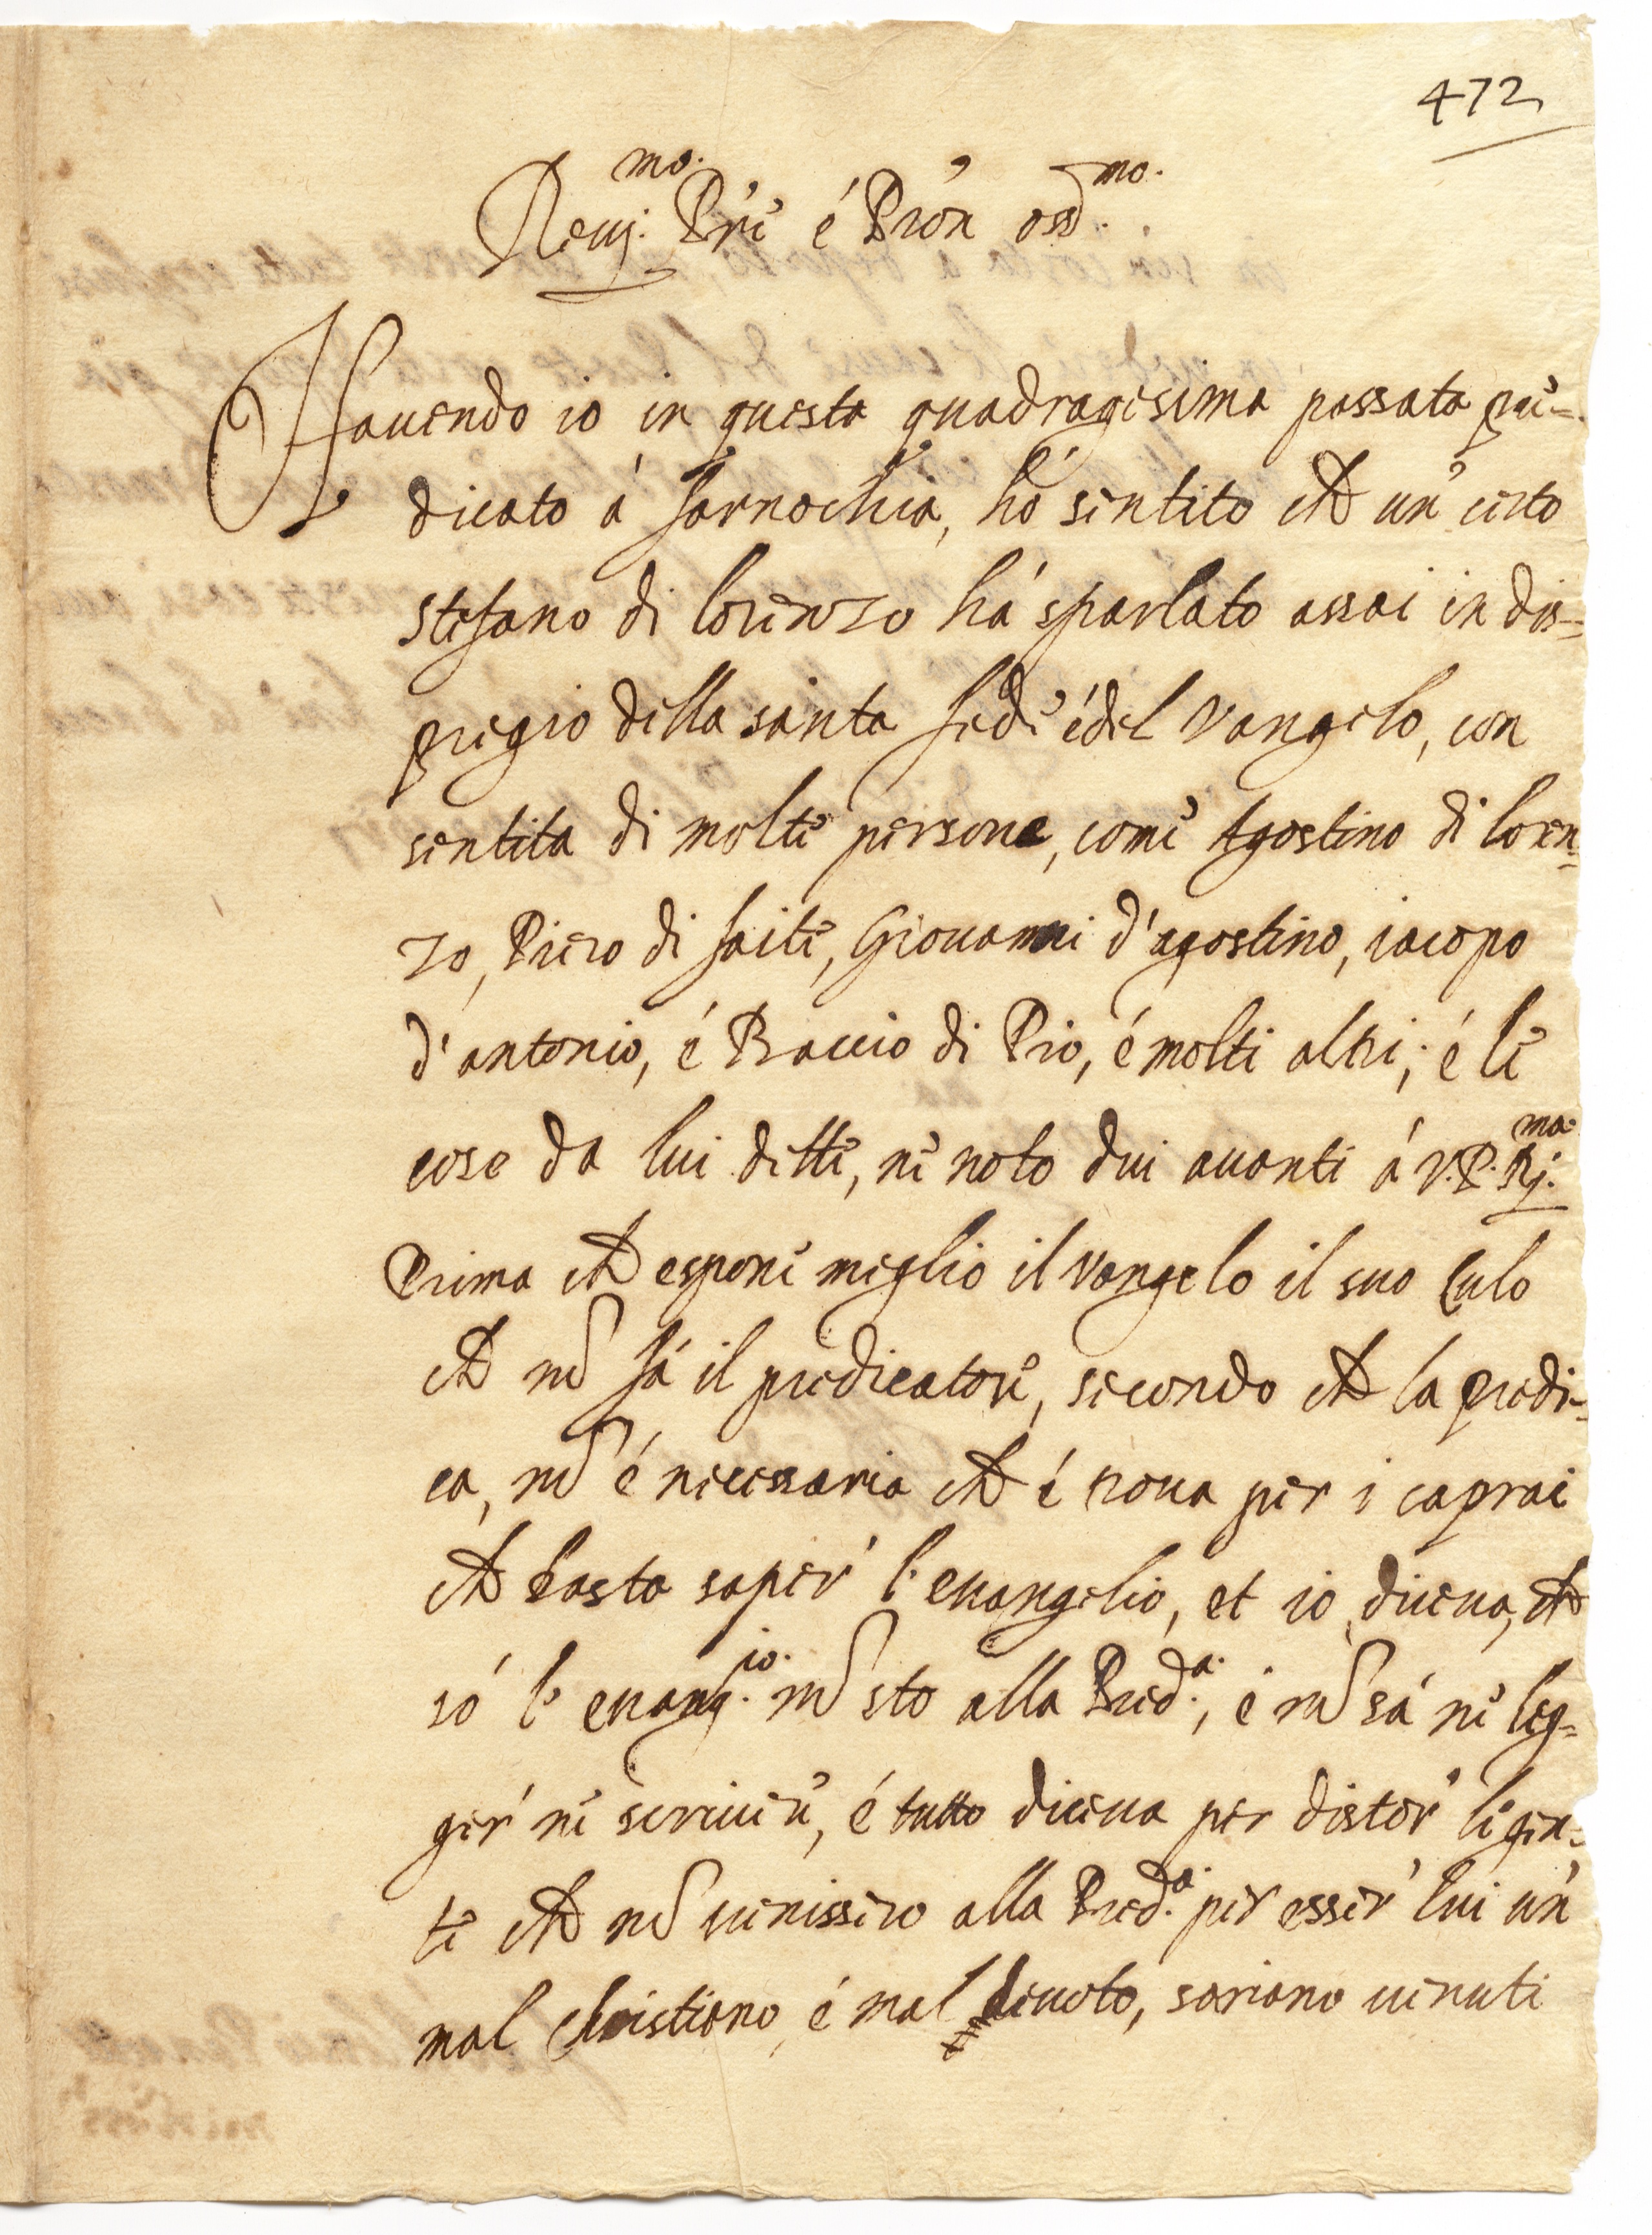 472
Reuj.mo Pre é Pron oss.mo
Hauendo io in questa quadragesima passata pre=
dicato á farnochia, hó sentito che un certo
stefano di lorenzo há sparlato assai in dis=
pregio della santa fede é del vangelo, con
sentita di molte persone, come Agostino di loren=
zo, Piero di faite, Giouanni d'agostino, iacopo
d'antonio, é Baccio di Pio, é molti altri; é le
cose da lui dette, ne noto dui auanti á V. P. Rj.ma
Prima che espone meglio il vangelo il suo Culo
che nō fá il predicatore, secondo che la predi=
ca, nō é necessaria che é noua per i caprai
che basta saper l'euangelio, et io diceua, che
só l'euang.io nō sto alla Pred.a, é nō sá ne leg=
ger ne scriuere, é tutto diceua per distor le gen=
te che nō uenissero alla Pred.a per esser lui un
mal christiano, é mal deuoto, sariano uenuti